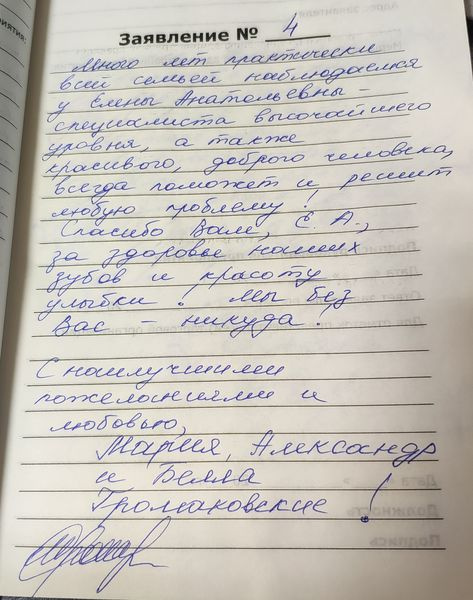 Заявление № 4
Много лет практически
всей семьей наблюдаемся
у Елены Анатольевны -
специалиста высочайшего
уровня, а также
красивого, доброго человека,
всегда поможет и решит
любую проблему!
Спасибо Вам, Е. А.,
за здоровье наших
зубов и красоту
улыбки! Мы без
Вас - никуда!
С наилучшими
пожеланиями и
любовью,
Мария, Александр
и Белла
Громаковские!